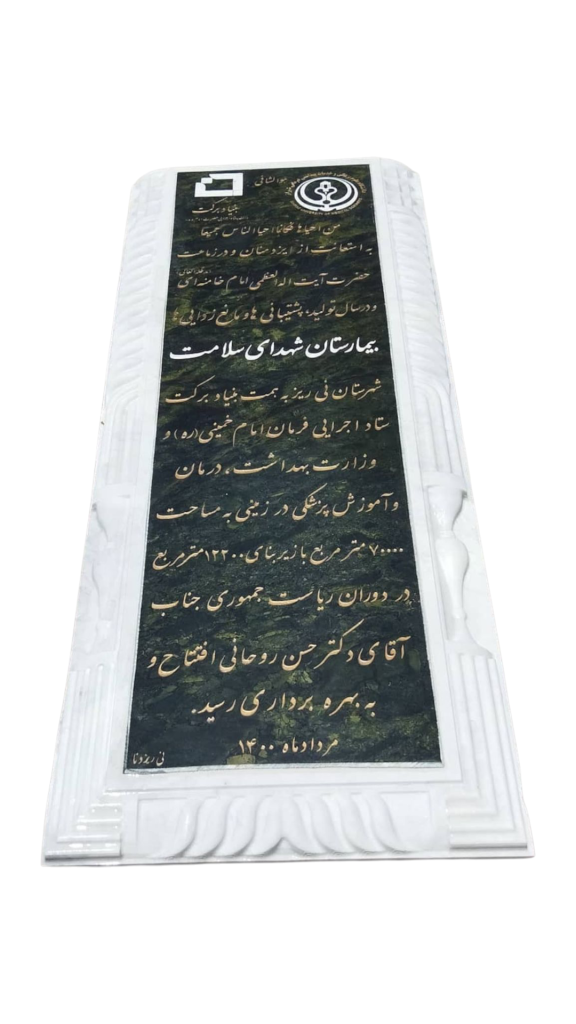 هوالشافی
بنیاد برکت
من احیاها فکانما احیا الناس جمیعا
به استعانت از ایزد منان و در زعامت
حضرت آیت اله العظمی امام خامنه ای
و در سال تولید، پشتیبانی ها و مانع زدایی ها
بیمارستان شهدای سلامت
شهرستان نی ریز به همت بنیاد برکت
ستاد اجرایی فرمان امام خمینی(ره) و
وزارت بهداشت، درمان
و آموزش پزشکی در زمینی به مساحت
۷۰۰۰۰ متر مربع با زیربنای ۱۲۲۰۰ متر مربع
در دوران ریاست جمهوری جناب
آقای دکتر حسن روحانی افتتاح و
به بهره برداری رسید.
مرداد ماه ۱۴۰۰